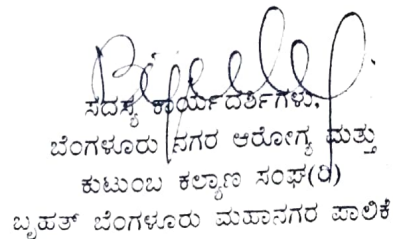 ಸದಸ್ಯ ಕಾರ್ಯದರ್ಶಿಗಳು,
ಬೆಂಗಳೂರು ನಗರ ಆರೋಗ್ಯ ಮತ್ತು
ಕುಟುಂಬ ಕಲ್ಯಾಣ ಸಂಘ(ರಿ)
ಬೃಹತ್ ಬೆಂಗಳೂರು ಮಹಾನಗರ ಪಾಲಿಕೆ